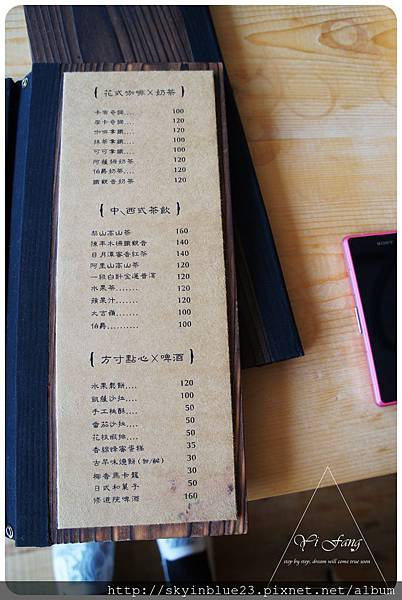 { 花式咖啡X奶茶 }
卡布奇諾.... 100
摩卡奇諾.... 120
咖啡拿鐵.... 120
抹茶拿鐵.... 100
可可拿鐵.... 100
阿薩姆奶茶 120
伯爵奶茶.... 120
鐵觀音奶茶 120
{ 中、西式茶飲 }
梨山高山茶 160
陳年木柵鐵觀音 140
日月潭蜜香紅茶 140
阿里山高山茶 120
120
水果茶....... 120
蘋果汁....... 120
大吉嶺....... 100
伯爵.......... 100
{ 方寸點心X啤酒 }
水果鬆餅.... 120
凱薩沙拉.... 100
手工桃酥.... 50
番茄沙拉.... 50
花枝蝦排.... 50
香錦蜂蜜蛋糕 35
古早味
30
椰香馬卡龍 50
日式和菓子 50
修道院啤酒 160
SONY
Yi Fang
step by step, dream will come true soon
http://skyinblue23.pixnet.net/album